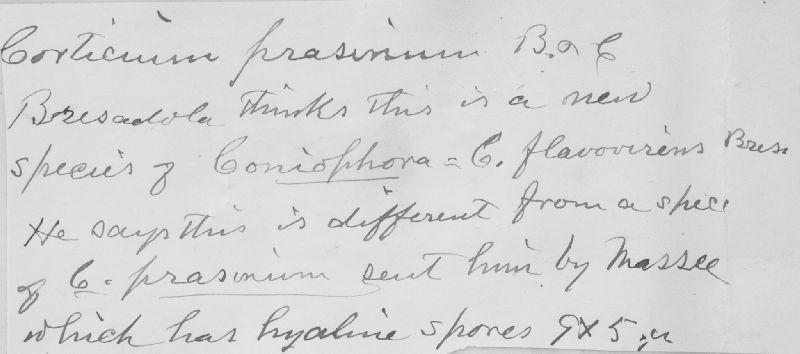 Corticium prasinum B. & C
Bresadola thinks this is a new
species of Coniophora = C. flavovirens Bres
He says this is different from a spec
of C. prasinum sent him by Massee
which has hyaline spores 9 x 5 μ